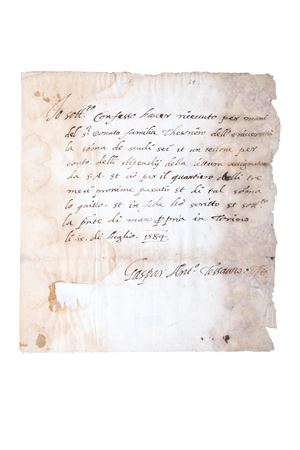 Io sott.to Confesso haver ricevuto per mani
del S.r Donato familia Thesriero dell'università
la soma de scudi sei et un terzo per
conto delli stipendij della lettura assignatami
da S.A. et ciò per il quartiero delli tre
mesi prossime passati et di tal soma
lo quito et in fede ho scritto et sott.ta
la p̃nte di mano ppria in Torino
li di luglio 1584
Gaspar Ant.o Tessauro